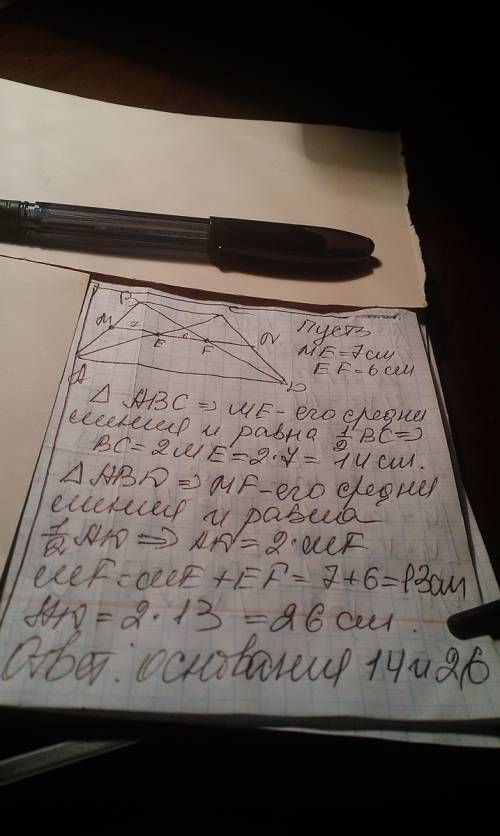 B
M 7 E 6 F N
A D
Пусть
ME = 7 см
EF = 6 см
△ ABC ⇒ ME - его средняя
линия и равна 1/2 BC ⇒
BC = 2ME = 2·7 = 14 см.
△ ABD ⇒ MF - его средняя
линия и равна
1/2 AD ⇒ AD = 2·MF
MF = ME + EF = 7+6 = 13 см
AD = 2·13 = 26 см.
Ответ: основания 14 и 26